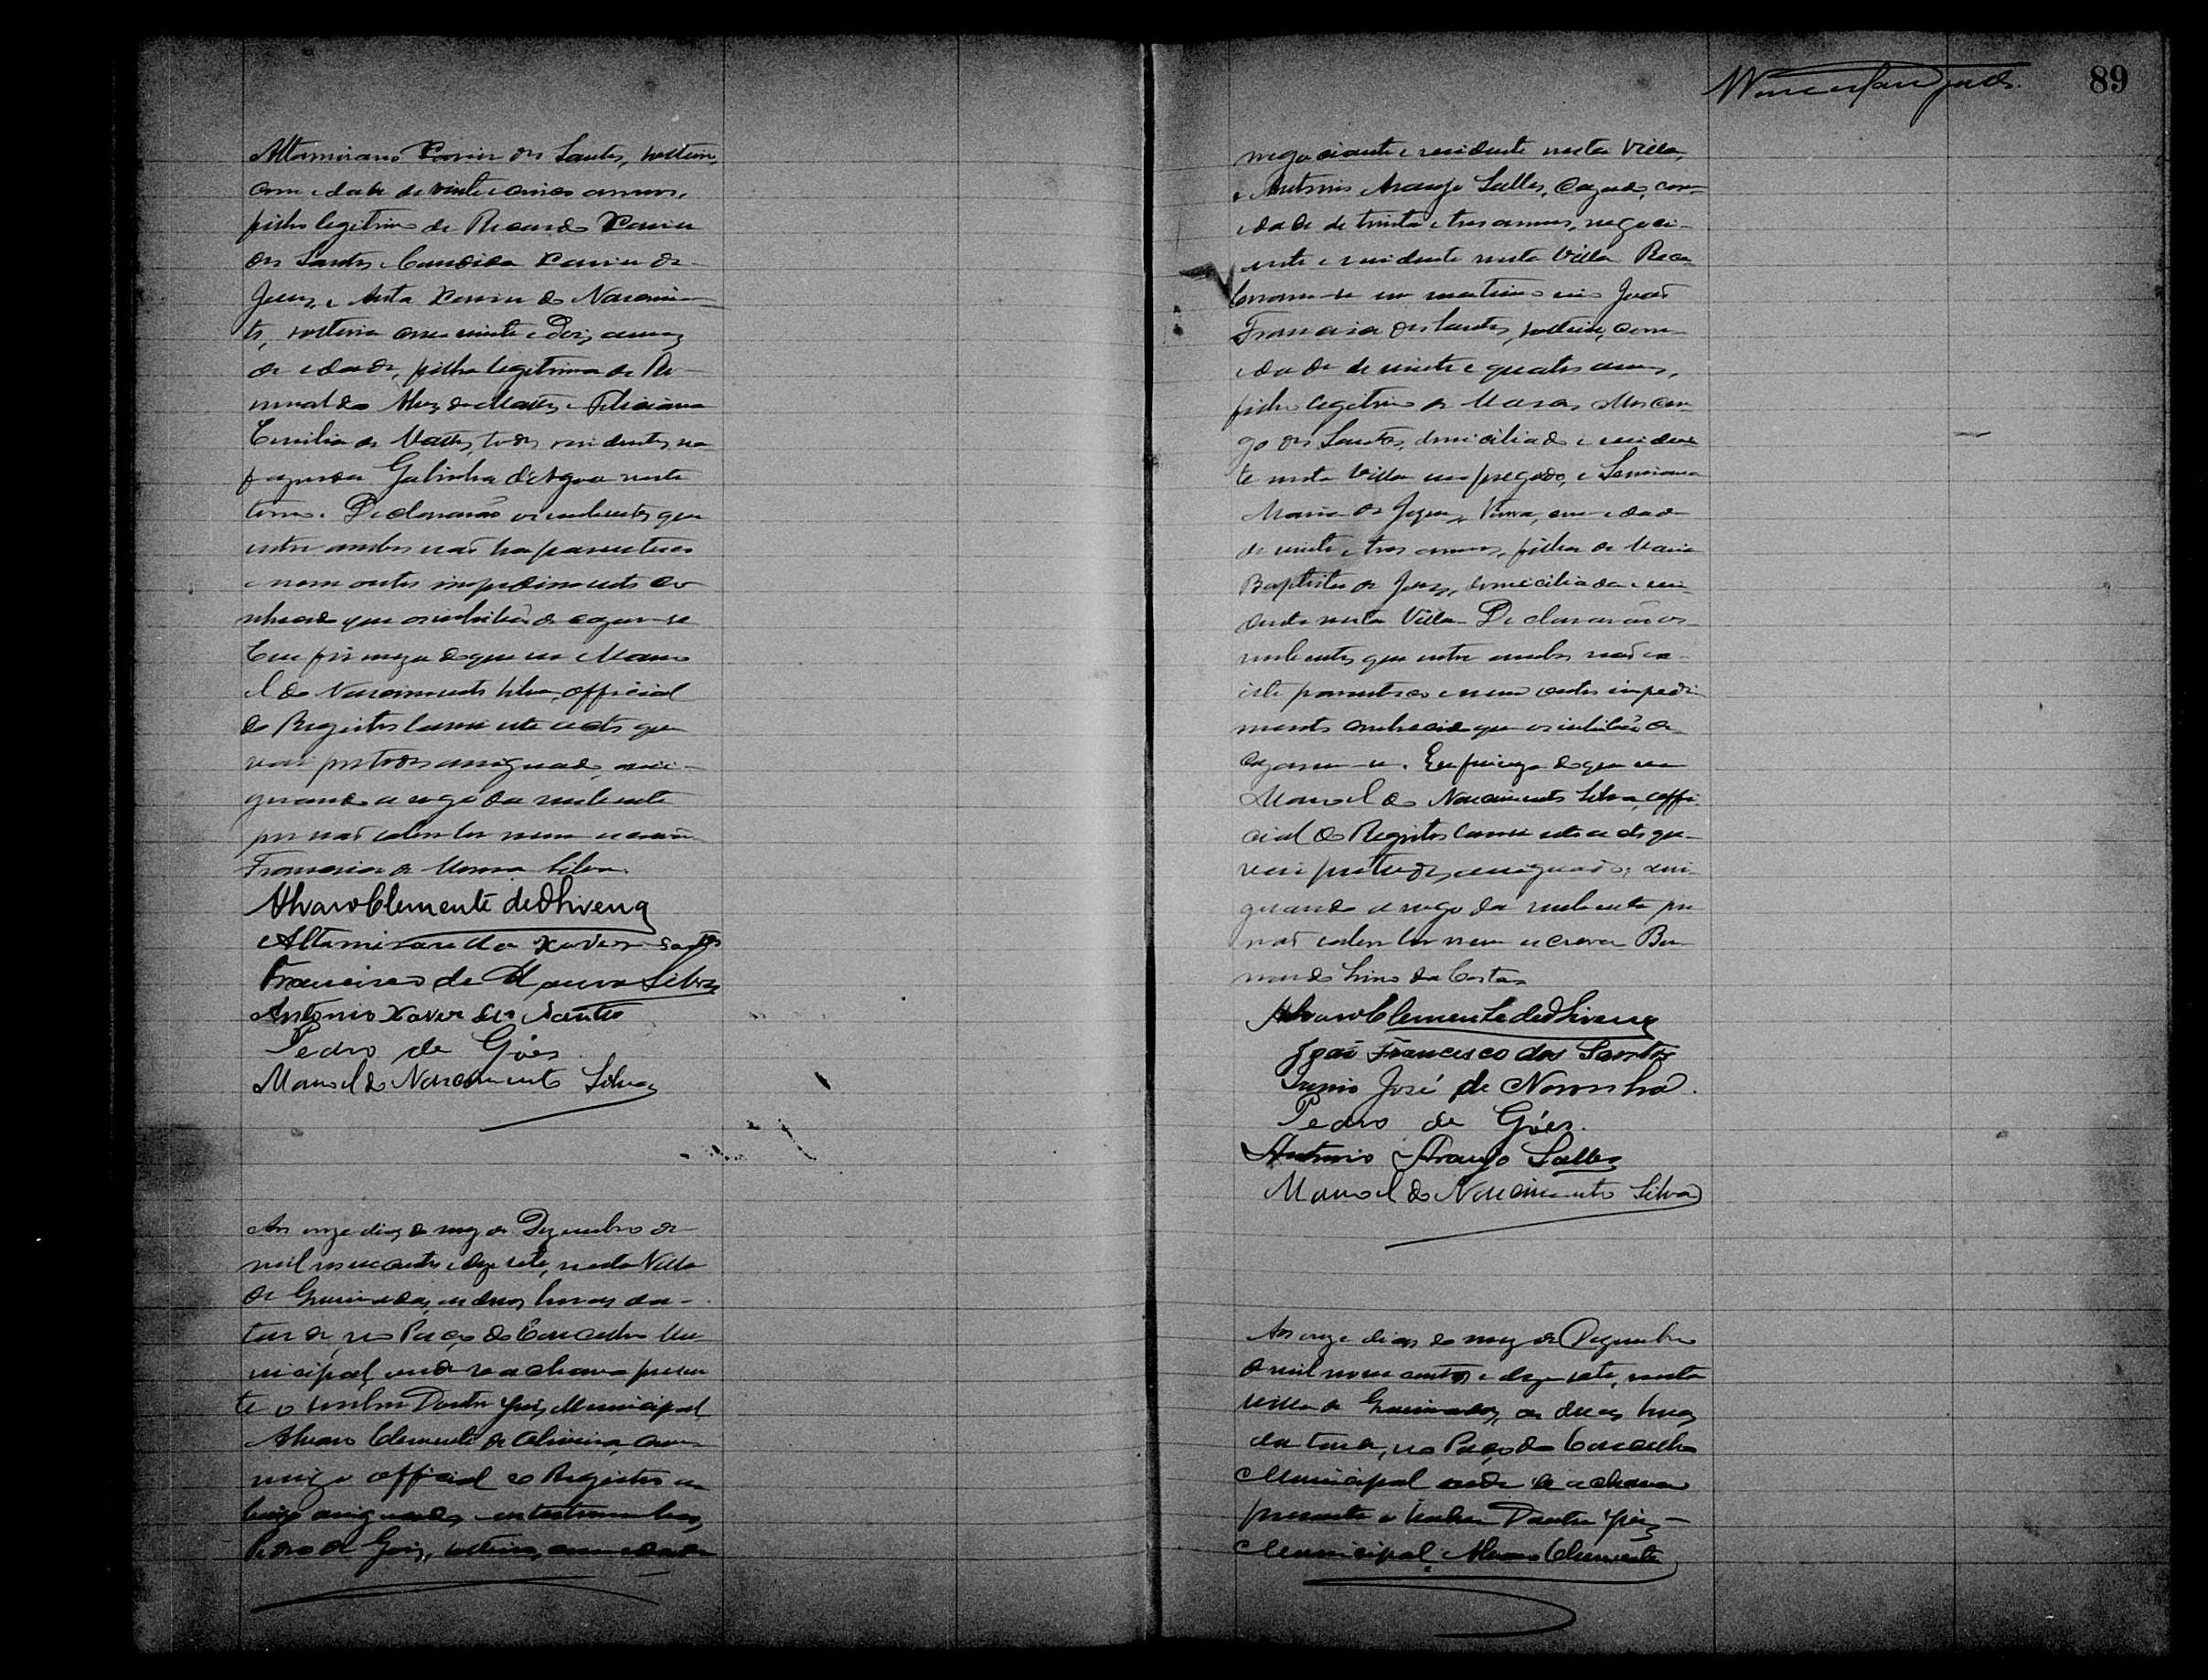 Altamirano Xavier dos Santos, solteiro,
com edade de vinte e cinco annos,
filho legitimo de Ricardo Xavier
dos Santos e Candida Xavier de
Jesus, e Anta Xavier do Nascimen-
to, solteira com vinte e dois annos
de edade, filha legitima de
Alves de Mattos e Feliciana
de Mattos, todos residentes na
fazenda d'Agua neste
termo. Declararão os nubentes que
entre ambos não ha parentesco
e nem outro impedimento co-
nhecido que os inhibião de cazar-se
Em firmeza do que eu Mano-
el do Nascimento Silva, official
do Registro lavrei este acto que
vai por todos assignado, assi-
gnando a rogo da nubente
por não saber ler nem escrever
Francisco de Moura Silva.
Alvaro Clemente de Oliveira
Altamirano Xavier Santos
Francisco de Moura Silva
Antonio Xavier dos Santos
Pedro de Góes
Manoel do Nascimento Silva
Aos onze dias do mez de Dezembro de
mil novecentos e dezesete, nesta Villa
de Queimadas, as duas horas da
tarde, no Paço do Concelho Mu-
nicipal, onde se achava presen-
te o senhor Doutor Juiz Municipal
Alvaro Clemente de Oliveira, com-
migo official do Registro a-
baixo assignado, as testemunhas,
Pedro de Góes, solteiro, com edade
89
negociante e residente nesta Villa,
e Antonio Araujo Salles, cazado, com
edade de trinta e tres annos, negoci-
ante e residente nesta Villa Rece-
beram-se em matrimonio João
Francisco dos Santos, solteiro, com
edade de vinte e quatro annos,
filho legitimo de
dos Santos, domiciliado e residen-
te nesta Villa empregado, e
Maria de Jesus, Viuva, com edade
de vinte e tres annos, filha de Maria
Baptista de Jesus, domiciliada e resi-
dente nesta Villa. Declararão os
nubentes que entre ambos não ex-
iste parentesco e nem outro impedi-
mento conhecido que os inhibião de
cazarem-se. Em firmeza do que eu
Manoel do Nascimento Silva, offi-
cial do Registro lavrei este acto que
vai por todos assignado, assi-
gnando a rogo da nubente por
não saber ler nem escrever Ber-
nardo Lino da Costa
Alvaro Clemente de Oliveira
João Francisco dos Santos
José de Noronha.
Pedro de Góes.
Antonio Araujo Salles
Manoel do Nascimento Silva
Aos onze dias do mez de Dezembro
de mil novecentos e dezesete, nesta
villa de Queimadas, as duas horas
da tarde, no Paço do Concelho
Municipal onde se achava
presente o senhor Doutor Juiz
Municipal, Alvaro Clemente